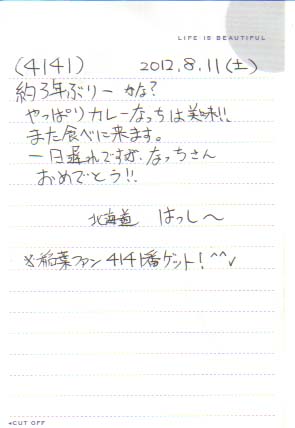 LIFE IS BEAUTIFUL
(4141) 2012.8.11(土)
約3年ぶりー かな?
やっぱりカレーなっちは美味!!
また食べに来ます。
一日遅れですが、なっちさん
おめでとう!!
北海道 はっし〜
※稲葉ファン4141番ゲット!^^v
◂CUT OFF